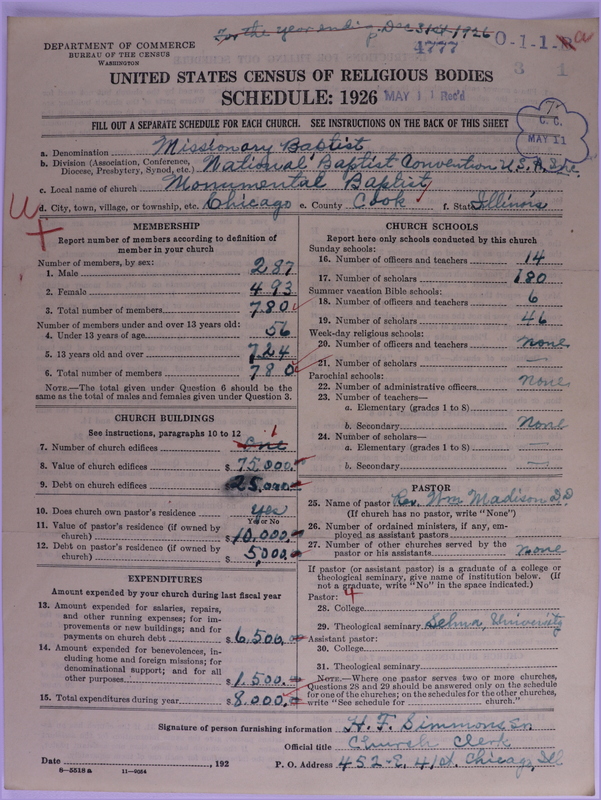 For the year ending Dec 31st 1926
DEPARTMENT OF COMMERCE
BUREAU OF THE CENSUS
WASHINGTON
4777
0-1-1-
3 1
UNITED STATES CENSUS OF RELIGIOUS BODIES
SCHEDULE: 1926
MAY 11 Rec'd
FILL OUT A SEPARATE SCHEDULE FOR EACH CHURCH. SEE INSTRUCTIONS ON THE BACK OF THIS SHEET
C. C.
MAY 11
a. Denomination Missionary Baptist
b. Division (Association, Conference, Diocese, Presbytery, Synod, etc.) National Baptist Convention U.S.A. Inc.
c. Local name of church Monumental Baptist
d. City, town, village, or township, etc. Chicago e. County Cook f. State Illinois
MEMBERSHIP
Report number of members according to definition of
member in your church
Number of members, by sex:
1. Male 287
2. Female 493
3. Total number of members 780
Number of members under and over 13 years old:
4. Under 13 years of age 56
5. 13 years old and over 724
6. Total number of members 780
NOTE.—The total given under Question 6 should be
same as the total of males and females given under Question 3.
CHURCH BUILDINGS
See instructions, paragraphs 10 to 12
7. Number of church edifices One 1
8. Value of church edifices $75,000.
9. Debt on church edifices 25,000
10. Does church own pastor's residence? Yes
Yes or No
11. Value of pastor's residence (if owned by
church) $10,000.
12. Debt on pastor's residence (if owned by
church) 5,000
EXPENDITURES
Amount expended by your church during last fiscal year
13. Amount expended for salaries, repairs,
and other running expenses; for im-
provements or new buildings; and for
payments on church debt $6,500.
14. Amount expended for benevolences, in-
cluding home and foreign missions; for
denominational support; and for all
other purposes $1,500.
15. Total expenditures during year $8,000.
CHURCH SCHOOLS
Report here only schools conducted by this church
Sunday schools:
16. Number of officers and teachers 14
17. Number of scholars 180
Summer vacation Bible schools:
18. Number of officers and teachers 6
19. Number of scholars 46
Week-day religious schools:
20. Number of officers and teachers none
21. Number of scholars —
Parochial schools:
22. Number of administrative officers None
23. Number of teachers—
a. Elementary (grades 1 to 8)
b. Secondary None
24. Number of scholars—
a. Elementary (grades 1 to 8) —
b. Secondary —
PASTOR
25. Name of pastor Rev. Wm Madison D.D
(If church has no pastor, write "None")
26. Number of ordained ministers, if any, em-
ployed as assistant pastors
27. Number of other churches served by the
pastor or his assistants none
If pastor (or assistant pastor) is a graduate of a college or
theological seminary, give name of institution below. (If
not a graduate, write "No" in the space indicated.)
Pastor: 4
28. College
29. Theological seminary Selma, University
Assistant pastor:
30. College
31. Theological seminary
NOTE.—Where one pastor serves two or more churches,
Questions 28 and 29 should be answered only on the schedule
for one of the churches; on the schedules for the other churches,
write "See schedule for church."
Signature of person furnishing information H. F. Simmons Sr
Official title Church Clerk
Date , 192
P. O. Address 452-E, 41st. Chicago, Ill
8—5518a 11—9034